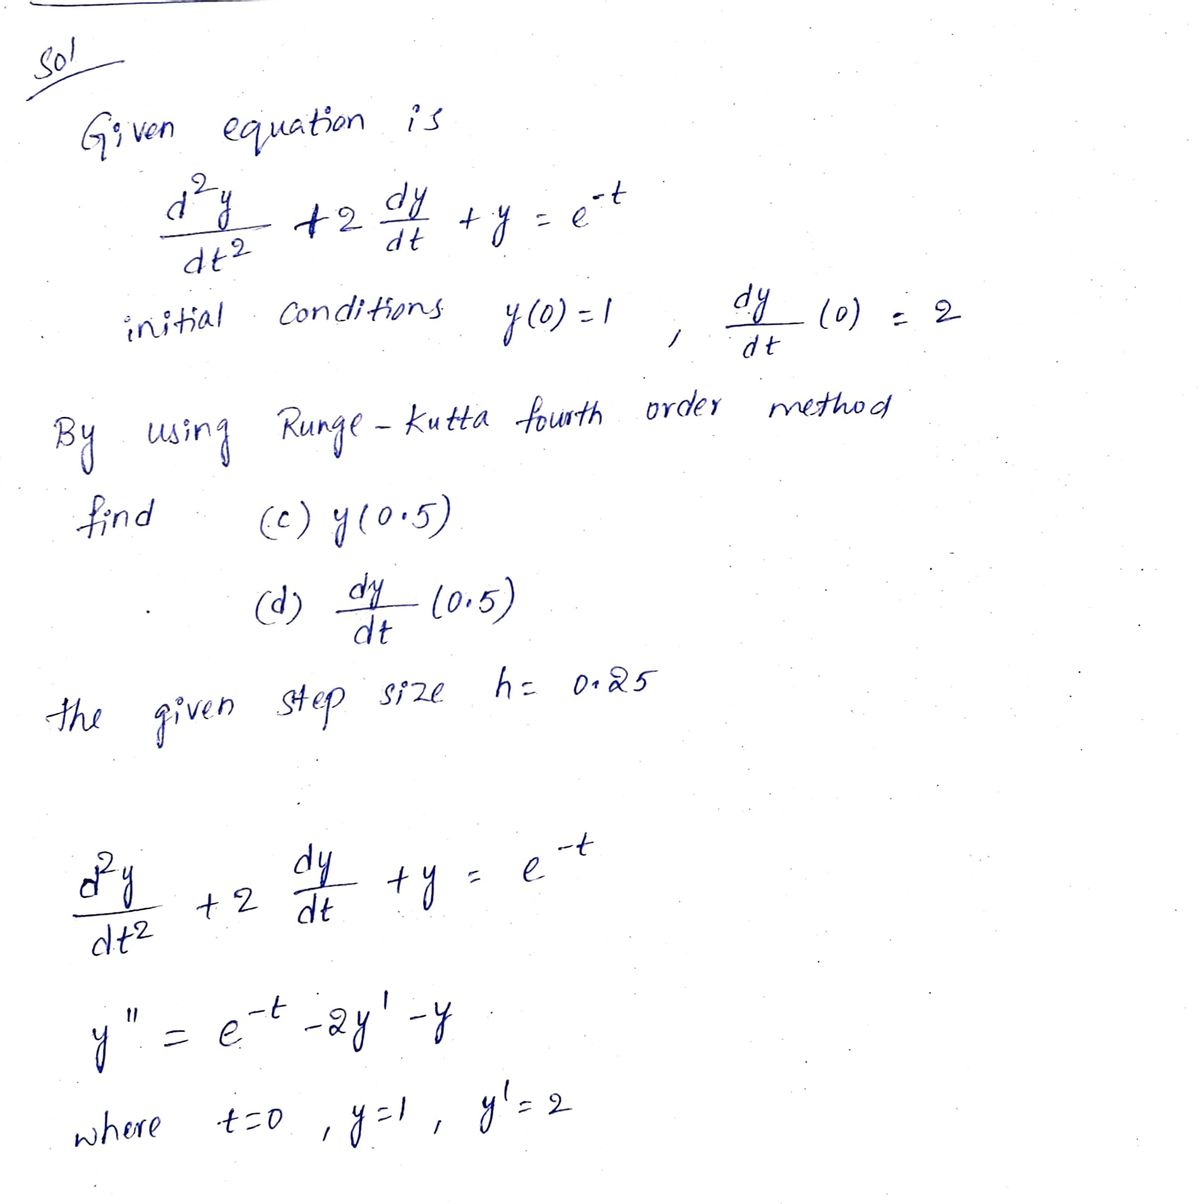 Sol
Given equation is
d²y/dt² + 2 dy/dt + y = e^-t
initial conditions y(0) = 1 , dy/dt (0) = 2
By using Runge - Kutta fourth order method
find (c) y(0.5)
(d) dy/dt (0.5)
the given step size h = 0.25
d²y/dt² + 2 dy/dt + y = e^-t
y'' = e^-t - 2y' - y
where t=0 , y=1 , y'=2